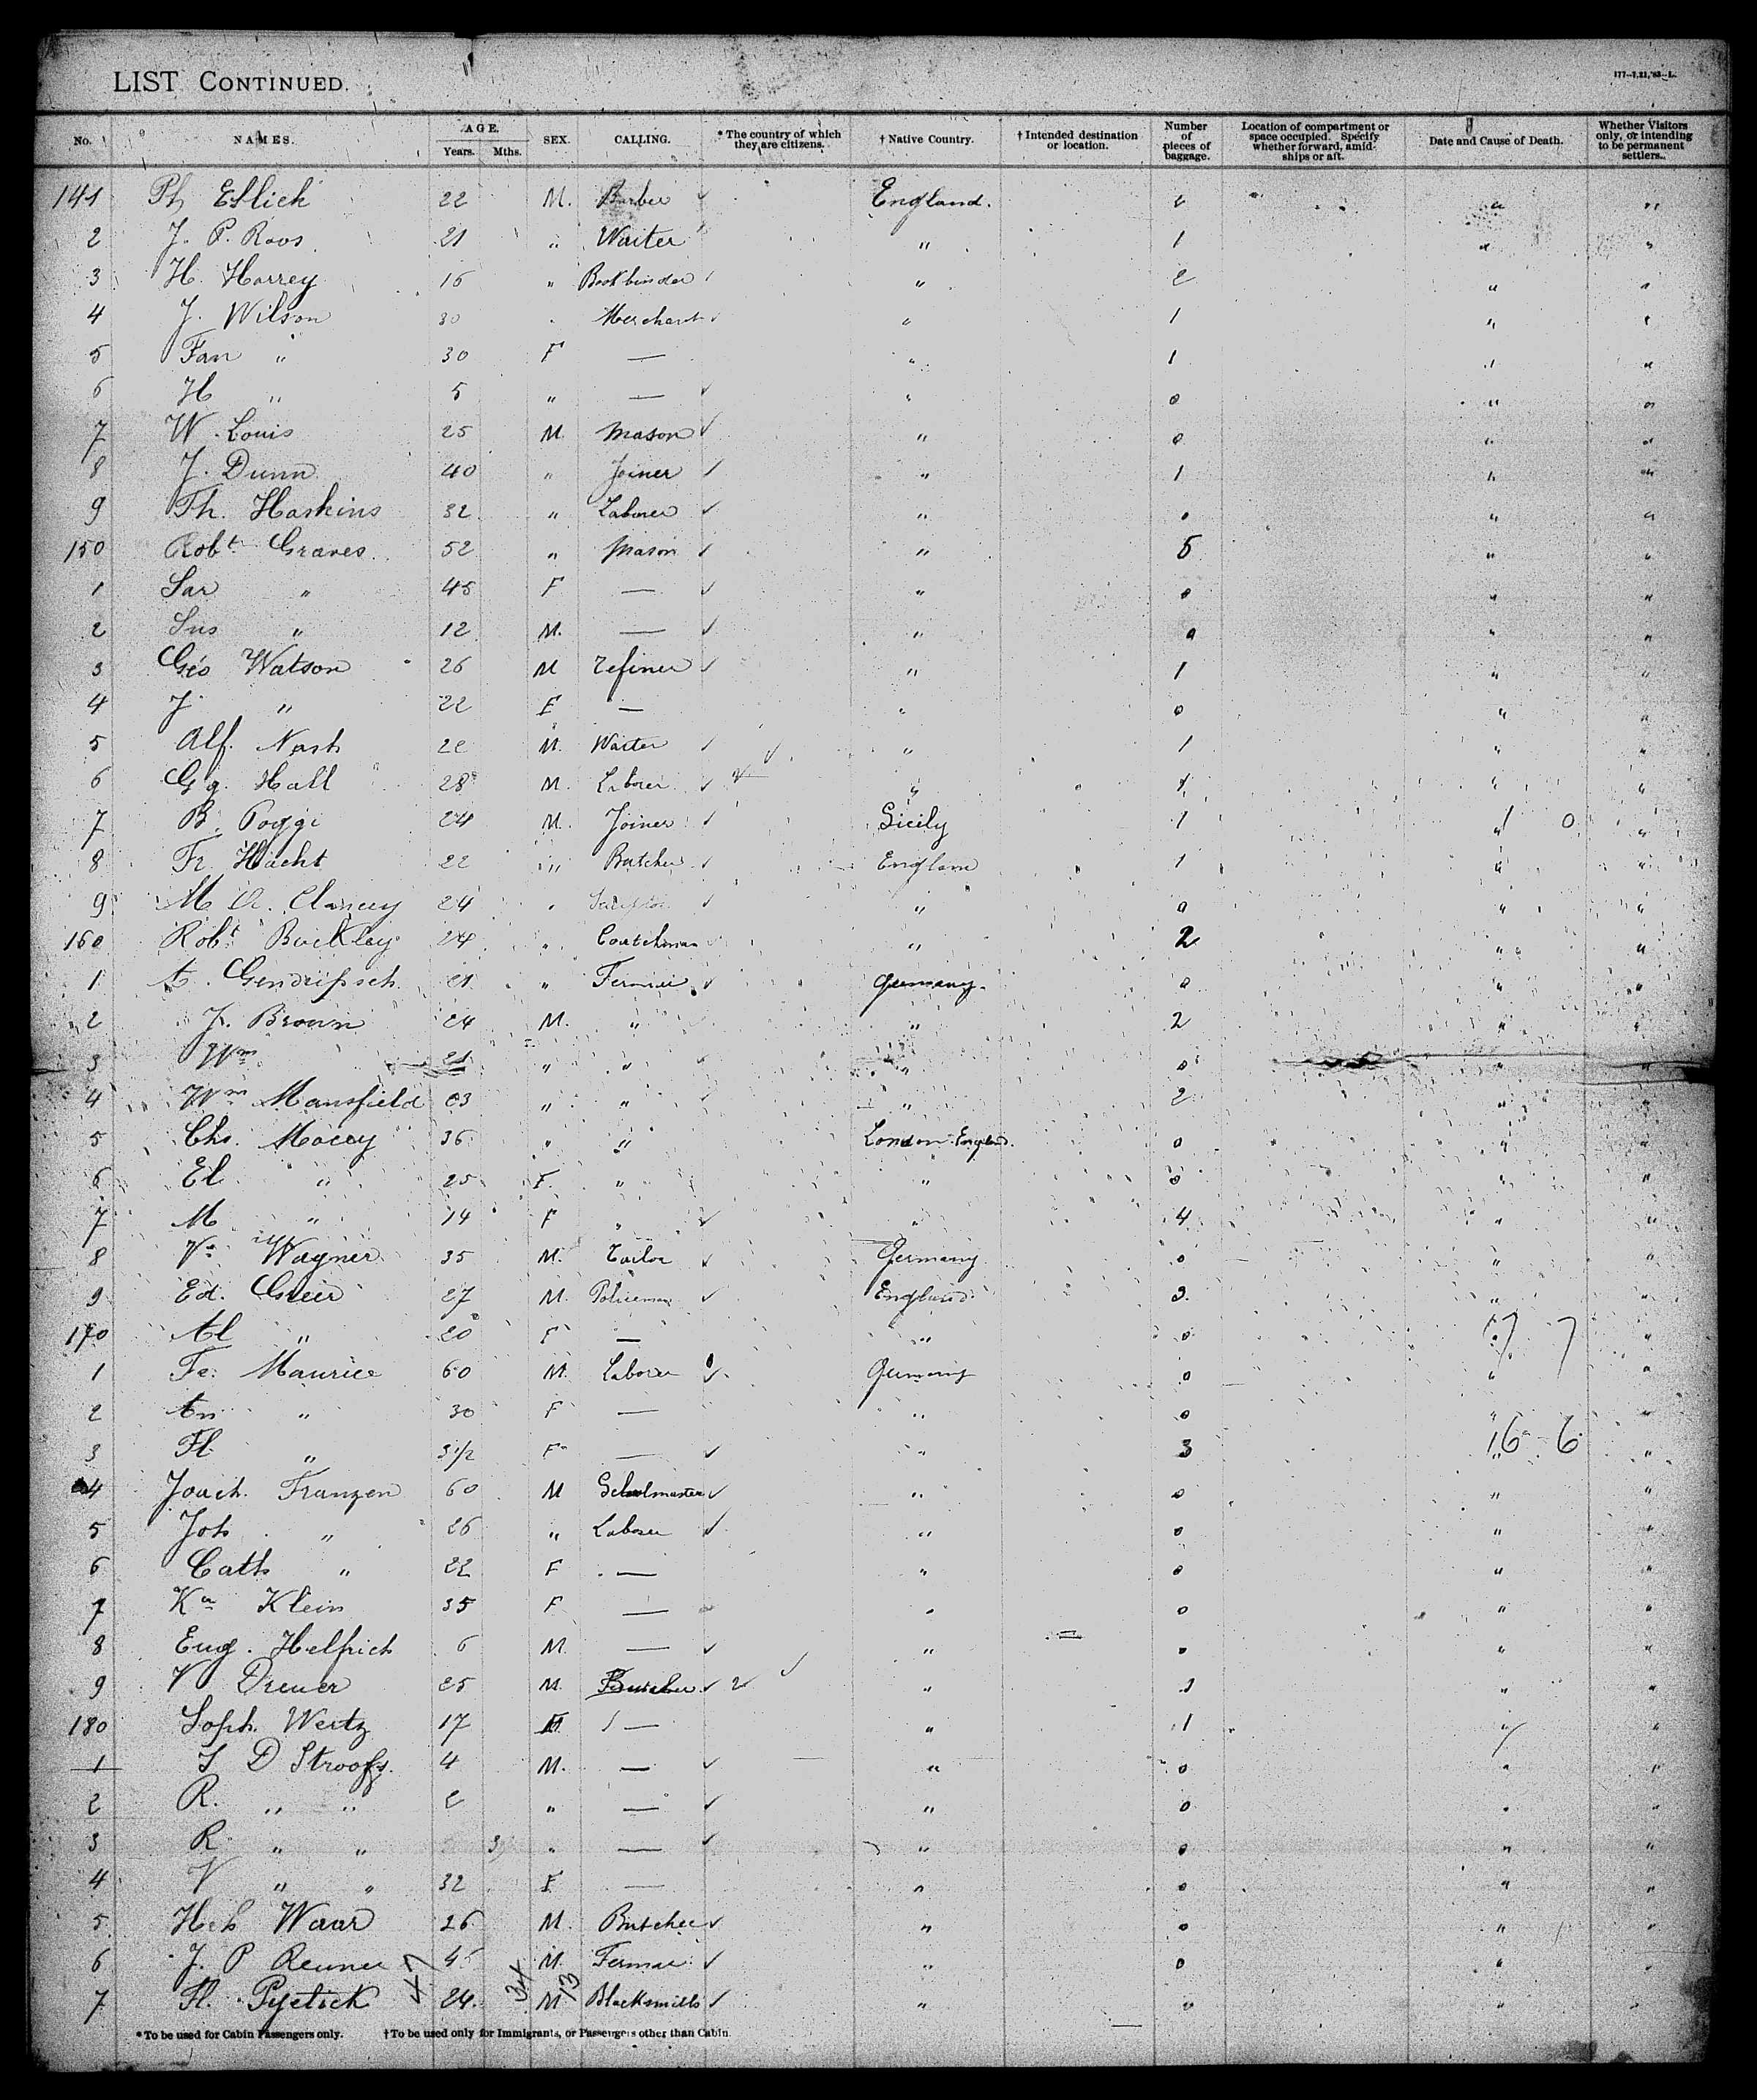 LIST CONTINUED.
177--7,21,'83--L.
No. NAMES. AGE. Years. Mths. SEX. CALLING. * The country of which they are citizens. † Native Country. † Intended destination or location. Number of pieces of baggage. Location of compartment or space occupied. Specify whether forward, amidships or aft. Date and Cause of Death. Whether Visitors only, or intending to be permanent settlers.
141 Ph Ellich 22 M. Barber England. " "
2 J. P. Roos 21 " Waiter " 1 " "
3 H. Harrey 16 " Bookbinder " 2 " "
4 J. Wilson 30 Merchant " 1 " "
5 Fan " 30 F — " 1 " "
6 H " 5 " — " 0 " "
7 W. Louis 25 M. Mason " 0 " "
8 J. Dunn 40 " Joiner " 1 " "
9 Th. Haskins 32 " Laborer " 0 " "
150 Robt Graves 52 " Mason " 5 " "
1 Sar " 45 F — " 0 " "
2 Sus " 12 M. — " 0 " "
3 Geo Watson 26 M refiner " 1 " "
4 J " 22 F — " 0 " "
5 Alf. Nash 22 M. Waiter " 1 " "
6 Gg. Hall 28 M. Laborer " 1 " "
7 B. Poggi 24 M. Joiner Sicily 1 " 0 "
8 Fr. Hacht 22 " Butcher England 1 " "
9 M. A. Clancey 24 " " 0 " "
160 Robt Buckley 24 " Coatchman " 2 " "
1 A. 21 " Germany. 0 " "
2 J. Brown 24 M. " " 2 " "
3 Wm 21 " " " 0 " "
4 Wm Mansfield 63 " " " 2 " "
5 Chs. Macey 36 " " London England. 0 " "
6 El " 25 F. " " 0 " "
7 M " 14 F " " 4 " "
8 Wagner 35 M. Tailor Germany 0 " "
9 Ed. Greer 27 M. Policeman England 3 " "
170 Al " 20 F — " 0 7 7 "
1 Fr. Maurice 60 M. Laborer Germany 0 " "
2 An " 30 F — " 0 " "
3 Fl. " 3 1/2 F — " 3 16 6 "
4 Joach. Franzen 60 M Schoolmaster " 0 " "
5 Joh " 26 " Laborer " 0 " "
6 Cath " 22 F — " 0 " "
7 Ka Klein 35 F — " 0 " "
8 Eug. Helfrich 6 M. — " 0 " "
9 V Dreuer 25 M. Butcher " 1 " "
180 Soph. Wertz 17 F — " 1 " "
1 D Stroofs 4 M. — " 0 " "
2 R. " " 2 " — " 0 " "
3 R. " " 3 " — " 0 " "
4 V " " 32 F — " 0 " "
5 Waar 26 M. Butcher " 0 " "
6 J. P 45 M. " 0 " "
7 Fl. 24 M Blacksmith " 0 " "
47 34 13
* To be used for Cabin Passengers only. † To be used only for Immigrants, or Passengers other than Cabin.